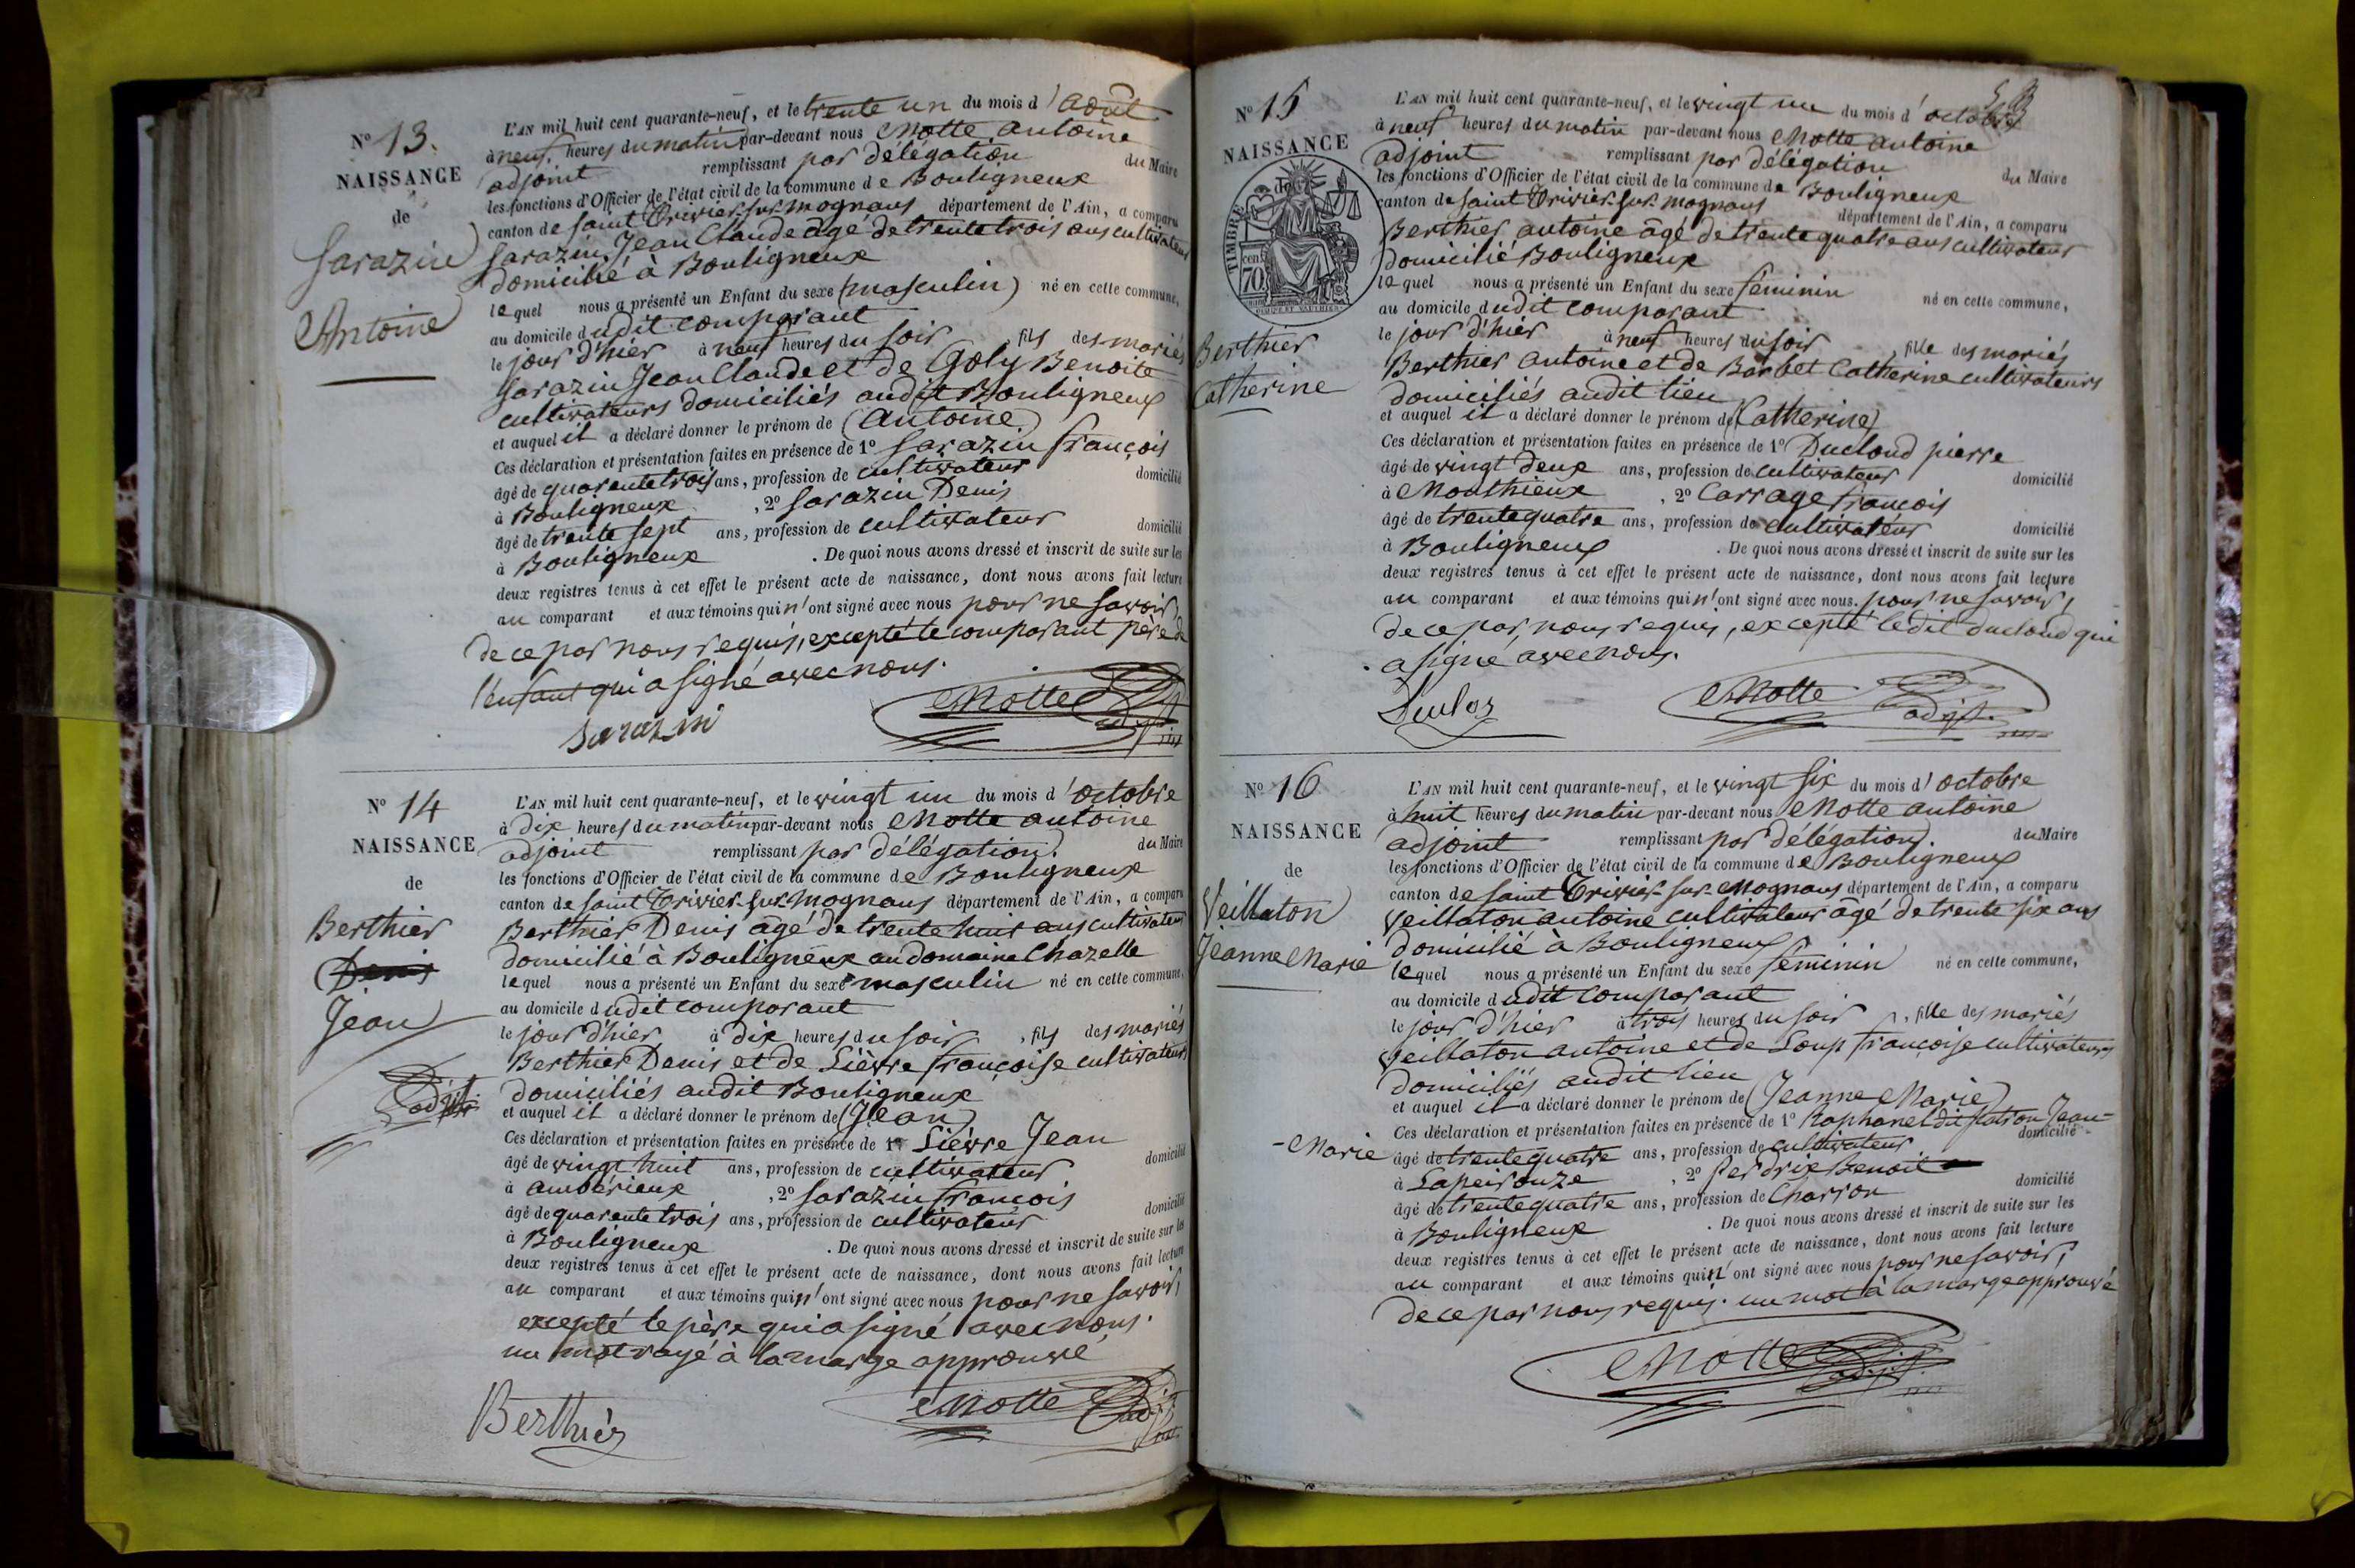 N° 13.
NAISSANCE
de
Sarazin
Antoine
L'AN mil huit cent quarante-neuf, et le trente un du mois d'août
à neuf heures du matin par-devant nous Motte antoine
adjoint remplissant par délégation du Maire
les fonctions d'Officier de l'état civil de la commune de Bouligneux
canton de saint Trivier-sur-mognans département de l'Ain, a comparu
Sarazin Jean Claude âgé de trente trois ans cultivateur
domicilié à Bouligneux
lequel nous a présenté un Enfant du sexe (masculin) né en cette commune,
au domicile dudit comparant
le jour d'hier à neuf heures du soir , fils des mariés
Sarazin Jean Claude et de Goly Benoite
cultivateurs domiciliés audit Bouligneux
et auquel il a déclaré donner le prénom de (Antoine)
Ces déclaration et présentation faites en présence de 1° Sarazin françois
âgé de quarente trois ans, profession de cultivateur domicilié
à Bouligneux , 2° Sarazin Denis
âgé de trente sept ans, profession de cultivateur domicilié
à Bouligneux . De quoi nous avons dressé et inscrit de suite sur les
deux registres tenus à cet effet le présent acte de naissance, dont nous avons fait lecture
au comparant et aux témoins qui n'ont signé avec nous pour ne savoir,
de ce par nous requis, excepté le comparant père de
l'enfant qui a signé avec nous.
Sarazin
Motte adjt
N° 14
NAISSANCE
de
Berthier
Denis
Jean
adjt
L'AN mil huit cent quarante-neuf, et le vingt un du mois d'octobre
à dix heures du matin par-devant nous Motte antoine
adjoint remplissant par délégation. du Maire
les fonctions d'Officier de l'état civil de la commune de Bouligneux
canton de saint Trivier-sur-mognans département de l'Ain, a comparu
Berthier Denis âgé de trente huit ans cultivateur
domicilié à Bouligneux au domaine Chazelle
lequel nous a présenté un Enfant du sexe masculin né en cette commune,
au domicile dudit comparant
le jour d'hier à dix heures du soir , fils des mariés
Berthier Denis et de Lièvre françoise cultivateurs
domiciliés audit Bouligneux
et auquel il a déclaré donner le prénom de (Jean)
Ces déclaration et présentation faites en présence de 1° Lièvre Jean
âgé de vingt huit ans, profession de cultivateur domicilié
à ambérieux , 2° Sarazin françois
âgé de quarente trois ans, profession de cultivateur domicilié
à Bouligneux . De quoi nous avons dressé et inscrit de suite sur les
deux registres tenus à cet effet le présent acte de naissance, dont nous avons fait lecture
au comparant et aux témoins qui n'ont signé avec nous pour ne savoir,
excepté le père qui a signé avec nous.
un mot rayé à la marge approuvé
Berthier
Motte adjt
N° 15
NAISSANCE
de
TIMBRE
cent
70
Berthier
Catherine
L'AN mil huit cent quarante-neuf, et le vingt un du mois d'octobre
à neuf heures du matin par-devant nous Motte antoine
adjoint remplissant par délégation du Maire
les fonctions d'Officier de l'état civil de la commune de Bouligneux
canton de saint Trivier-sur-mognans département de l'Ain, a comparu
Berthier antoine âgé de trente quatre ans cultivateur
domicilié Bouligneux
lequel nous a présenté un Enfant du sexe féminin né en cette commune,
au domicile dudit comparant
le jour d'hier à neuf heures du soir , fille des mariés
Berthier antoine et de Barbet Catherine cultivateurs
domiciliés audit lieu
et auquel il a déclaré donner le prénom de (Catherine)
Ces déclaration et présentation faites en présence de 1° Ducloud pierre
âgé de vingt deux ans, profession de cultivateur domicilié
à Monthieux , 2° Carrage françois
âgé de trente quatre ans, profession de cultivateur domicilié
à Bouligneux . De quoi nous avons dressé et inscrit de suite sur les
deux registres tenus à cet effet le présent acte de naissance, dont nous avons fait lecture
au comparant et aux témoins qui n'ont signé avec nous. pour ne savoir,
de ce par nous requis, excepté ledit ducloud qui
a signé avec nous.
Motte adjt.
N° 16
NAISSANCE
de
Veillaton
Jeanne Marie
- Marie
L'AN mil huit cent quarante-neuf, et le vingt six du mois d'octobre
à huit heures du matin par-devant nous Motte antoine
adjoint remplissant par délégation. du Maire
les fonctions d'Officier de l'état civil de la commune de Bouligneux
canton de saint Trivier-sur-Mognans département de l'Ain, a comparu
Veillaton antoine cultivateur âgé de trente six ans
domicilié à Bouligneux
lequel nous a présenté un Enfant du sexe féminin né en cette commune,
au domicile dudit comparant
le jour d'hier à trois heures du soir , fille des mariés
Veillaton antoine et de Loup françoise cultivateurs
domiciliés audit lieu
et auquel il a déclaré donner le prénom de (Jeanne Marie)
Ces déclaration et présentation faites en présence de 1° Raphanel dit Jean-
âgé de trente quatre ans, profession de cultivateur domicilié
à Lapeirouze , 2° Perdrix Benoit
âgé de trente quatre ans, profession de Charron domicilié
à Bouligneux . De quoi nous avons dressé et inscrit de suite sur les
deux registres tenus à cet effet le présent acte de naissance, dont nous avons fait lecture
au comparant et aux témoins qui n'ont signé avec nous pour ne savoir,
de ce par nous requis. un mot à la marge approuvé
Motte adjt.